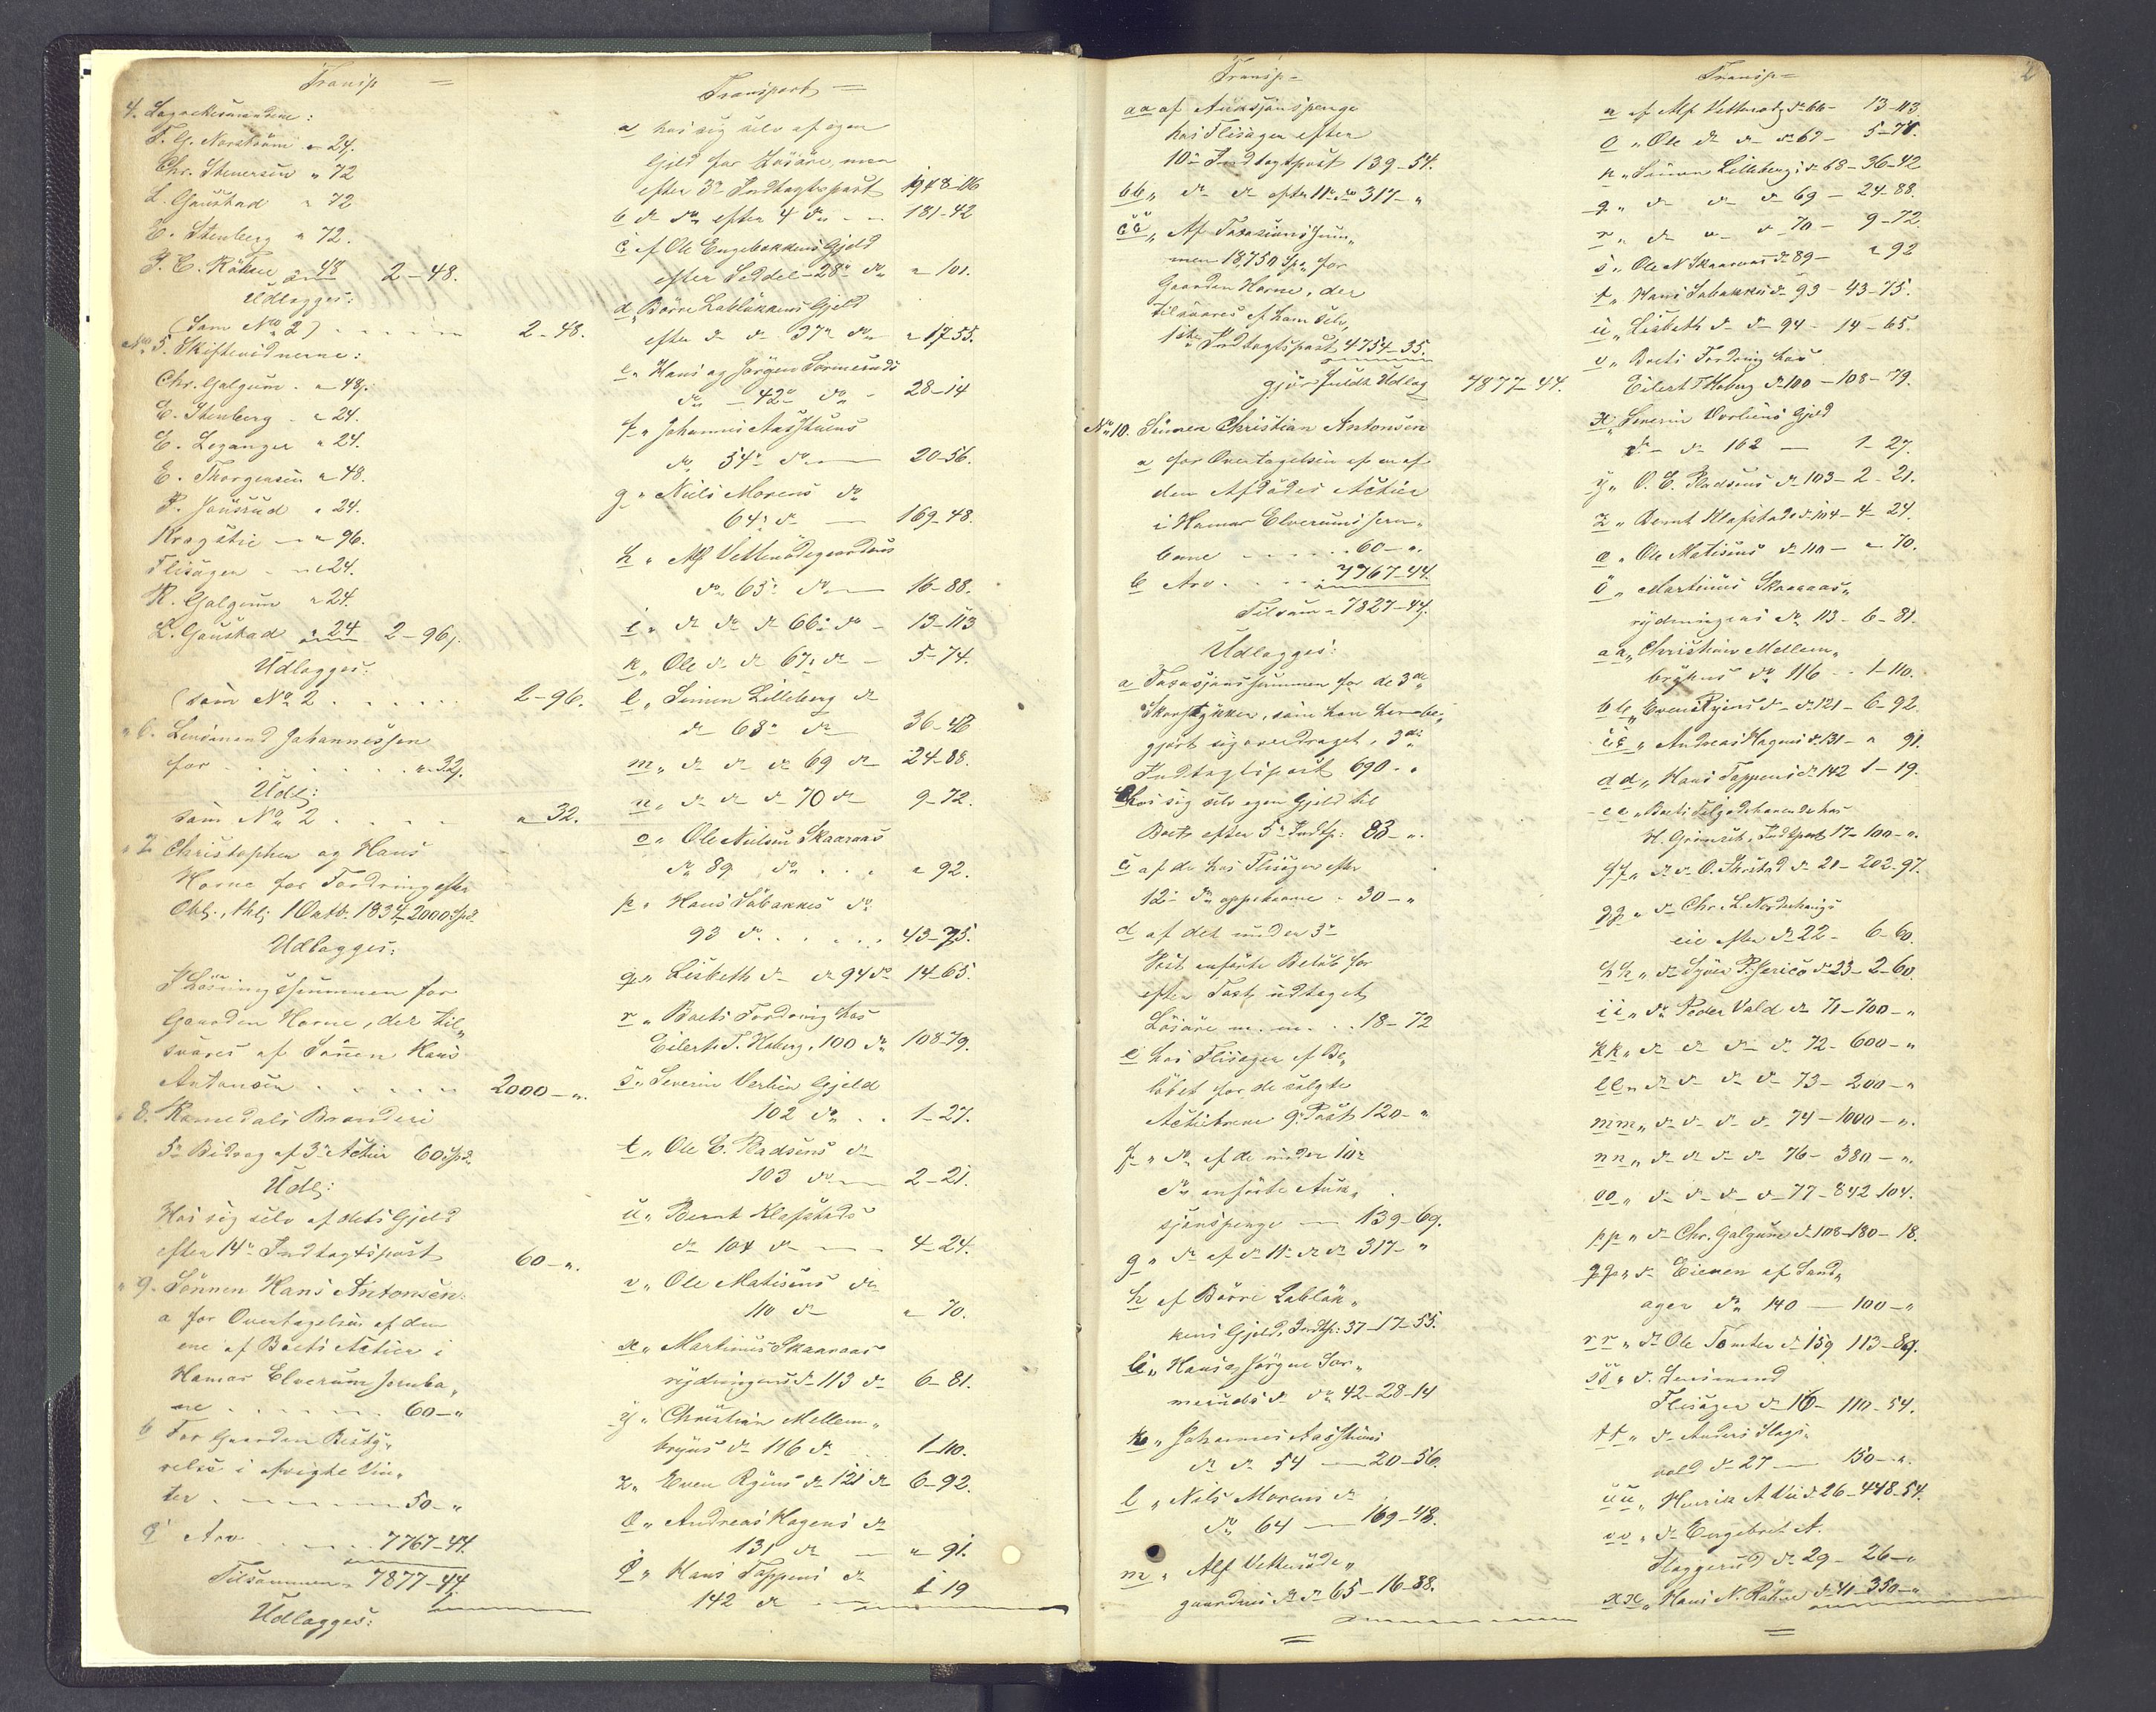 Transp =
4. Lagrettesmændene:
T. G. Norstrøm " 24.
Chr. Stenersen " 72
L. Gaustad " 72
E. Stenberg " 72.
P. E. Røhne " 48 2-48.
Udlægges:
(som No 2) 2-48.
No 5. Skiftevidnerne:
Chr. Galgum " 48.
E. Stenberg " 24.
E. Leganger " 24.
E. Thorgersen " 48.
P. Jønsrud " 24.
" 96.
Flisager " 24.
R. Galgum " 24.
L. Gaustad " 24 2-96.
Udlægges:
(som No 2 2-96.
" 6. Lensmand Johannessen
for " 32.
Udl:
som No 2 " 32.
" 7. Christopher og Hans
Horne for Fordring efter
Obl. thl: 1 Octb. 1834 2000 Spd.
Udlægges:
I Løsningssummen for
Gaarden Horne, der til„
svares af Sønnen Hans
Antonsen 2000-".
" 8. Romedals Brænderi
5te Bidrag af 3de Actier 60 Spd.
Udl:
Hos sig selv af dets Gjeld
efter 14de Indtægtspost 60-".
" 9. Sønnen Hans Antonsen:
a for Overtagelsen af den
ene af Boets Actier i
Hamar Elverum Jernba„
ne 60-"
b For Gaarden Besty„
relse i afvigte Vin„
ter 50-"
c Arv 7767-44.
Tilsammen = 7877-44.
Udlægges:
Transport =
a hos sig selv af egen
Gjeld for Løsøre m.m
efter 3de Indtægtspost 1948-116
b do do efter 4 do 181-42
c af Ole Engebakkens Gjeld
efter Seddel 28de do " 101.
d, Børre Labløkkens Gjeld
efter do do 37de do " 17-55.
e " Hans og Jørgen Sormeruds
do 42de do 28-14
f " Johannes Aasstuens
do 54de do 20-56.
g " Niels Morens do
64de do 169-48.
h " Alf Vettenødegaardens
do 65de do 16-88.
i " do do do 66de do 13-113
k " Ole do do 67de do 5-74.
l " Simen Lilleberg do
do 68de do 36-42
m " do do do 69 do 24-88.
n " do do do 70 do 9-72.
o " Ole Nielsen Skaaraas
do 89 do " 92.
p " Hans Sabakkes do
93 do 43-75.
q " Lisbeth do do 94 do 14-65.
r " Boets Fordring hos
Eilert T. Hoberg, 100 do 108-79.
s " Severin Verlien Gjeld
102 do 1-27.
t " Ole E. Pladsens do
103 do 2-21.
u " Bernt Klafstads
do 104 do 4-24.
v " Ole Matisens do
110 do " 70.
x " Martinus Skaaraas
rydningens do 113 do 6-81.
y " Christian Mellem„
bryns do 116 do 1-110.
z " Even Ryens do 121 do 6-92.
æ " Andreas Hagens do
131 do " 91.
ø " Hans Tappens do
142 do 1-19
Transp =
aa af Auksjonspenge
hos Flisager efter
10de Indtægtspost 139-54.
bb " do do efter 11de do 317-"
cc " Af Taxasionssum„
men 18,750 Spd. for
Gaarden Horne, der
tilsvares af ham selv,
1ste Indtægtspost 4754-35.
gjør fuldt Udlæg 7877-44.
No 10. Sønnen Christian Antonsen
a for Overtagelsen af en af
den Afdødes Actier
i Hamar Elverums Jern„
bane 60-".
b Arv 7767-44.
Tilsam = 7827-44.
Udlægges:
a Taxasjonssummen for de 3de
Skovstykker, som han har be„
gjært sig overdraget, 3die
Indtægtspost 690-"
b hos sig selv egen Gjeld til
Boet efter 5te Indtp: 83-".
c af de hos Flisager efter
12te do oppebaarne 30-"
d af det under 3de
Post anførte Beløb for
efter Taxt udtaget
Løsøre m.m. 18-72
e hos Flisager af Be„
løbet for de solgte
Actiebreve 9. Post 120-"
f " do af de under 10de
do anførte Auk„
sjonspenge 139-69.
g " do af do 11te do do 317-"
h af Børre Labløk„
kens Gjeld, Indtp: 37-17-55.
i " Hans og Jørgen Sor„
meruds do do 42-28-14
k " Johannes Aasstuens
do do 54 20-56.
l " Nils Morens do
do 64 169-48.
m " Alf Vettenøde„
gaardens do do 65-16-88.
Transp = 2
n af Alf Vettenødg do 66- 13-113
o " Ole do do do 67- 5-74.
p " Simen Lilleberg: do 68-36-42
q " do do do 69-24-88.
r " do " do 70- 9-72.
s " Ole N Skaaraas do 89- " 92
t " Hans Sabakkes do 93-43-75.
u " Lisbeth do do 94-14-65.
v " Boets Fordring hos
Eilert T Hoberg do 100-108-79.
x " Severin Verliens Gjeld
do do 102 1-27.
y " O. E. Pladsens do 103-2-21.
z " Bernt Klafstads do 104-4-24.
æ " Ole Matisens do 110- " 70.
ø " Martinus Skaaraas„
rydningens do 113-6-81.
aa " Christian Mellem„
bryns do 116 1-110.
bb " Even Ryens do do 121-6-92.
cc " Andreas Hagens do 131- " 91.
dd " Hans Tappens do 142 1-19.
ee " Boets Tilgodehavende hos
H. Grimset, Indtpost 17-100-".
ff " do do O. Thorstad do 21-202-97.
gg " do Chr. L. Norderhaugs
eie efter do 22- 6-60.
hh " do Syver P. Jerico do 23-2-60.
ii " do Peder Vold do 71-700-"
kk " do do do do 72-600-"
ll " do do do do 73-200-"
mm " do do do do 74-1000-".
nn " do do do do 76-380-".
oo " do do do do 77-842-104.
pp " do Chr. Galgum do 108-180-18.
qq " do Eieren af Sand„
ager do 140 100-"
rr " do Ole Tomter do 159 113-89.
ss " do Lensmand
Flisager do 16-110-54.
tt " do Anders Slags„
vold do 27 150-".
uu " Henrik A Lie do 26-448-54.
vv " do Engebret A.
Slaggerud do 29-26-"
xx " Hans N. Røhne do 41-350-"